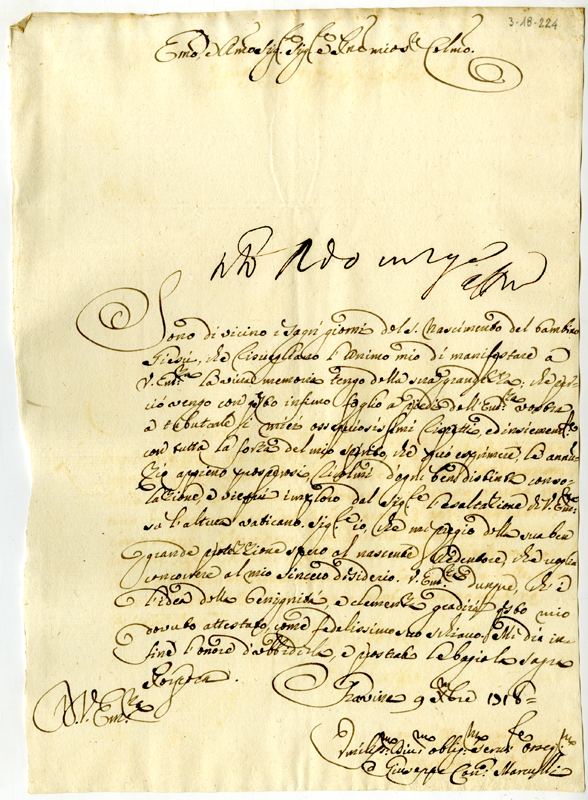 3-18-224
Emo, e Rmo Sigre, Sigre e Pne mio Colmo.
Sono di vicino i Sagri giorni del S. Nascimento del bambino
Giesù, che risvegliano l'animo mio di manifestare a
V. Emza la viva memoria tengo della sua grandezza; che per
ciò vengo con questo infimo foglio a piedi dell'Emza vostra
a tributarle li miei ossequiosissimi rispetti, ed insiememte
con tutta la forza del mio spirito, che può esprimere le annun
zio appieno prosperosi d'ogni ben distinta conso-
lazione, e imploro dal Sigre l'esaltazione di V. Emza
su l'altura vaticano. Sigre io, che mi pregio della sua ben
grande protezzione spero al nascente Redentore, che voglia
concorrere al mio sincero desiderio. V. Emza dunque, che è
l'idea della benignità, e clemenza gradirà questo mio
dovuto attestato, come fedelissimo suo schiavo. Mi dia in
fine l'onore d'ubbidirla, e prostrato le bagio la sagra
Porpora.
Gravina 9 Xbre 1718=
D. V. Emza
Umilmo Divmo obligmo Serre osseqmo
Giuseppe Conr Marculli